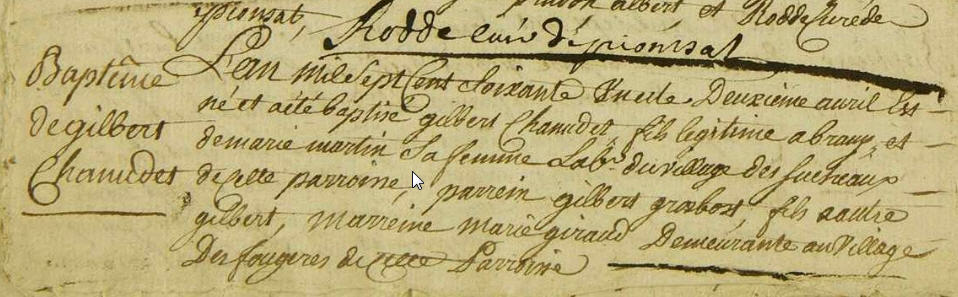 pionsat, albert et Rodde curé de
Rodde curé de pionsat
Baptême
de gilbert
Chanudet
L'an mil sept Cent Soixante Deuxième avril Est
né et a été baptisé gilbert Chanudet, fils legitime a et
de marie martin Sa femme Labr. du village des
de cette parroisse, parrein gilbert fils a autre
gilbert, marreine marie giraud Demeurante au Village
Des fougeres de cette Parroisse